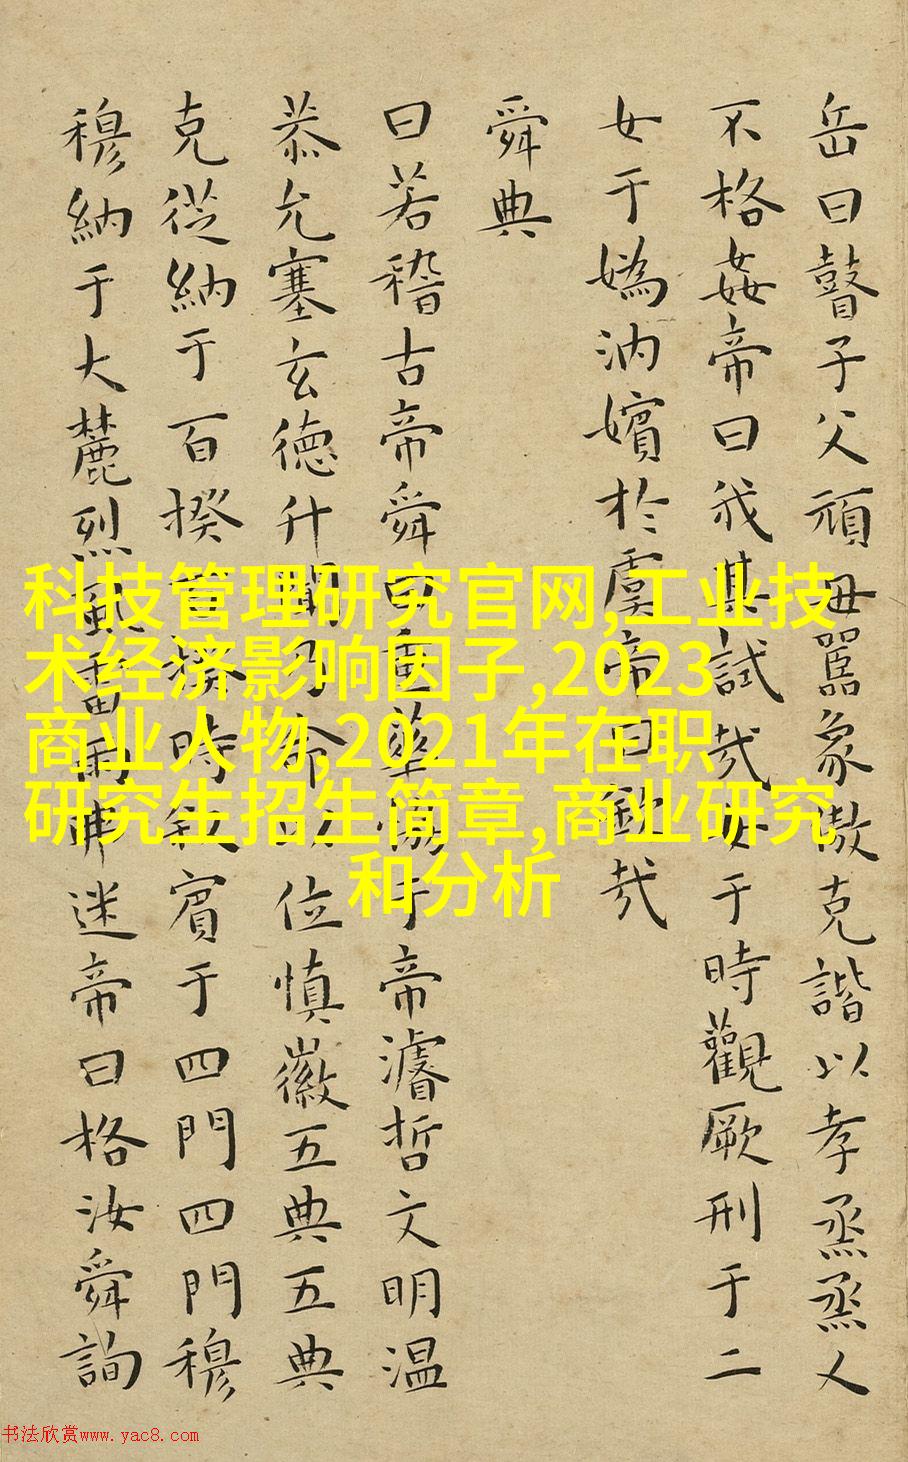 岳曰瞽子父頑母嚚象傲克諧以孝烝烝乂
不格姦帝曰我其試哉女于時觀厥刑于二
女于媯汭嬪於虞帝曰欽哉
舜典
曰若稽古帝舜曰重華協于帝濬哲文明温
恭允塞玄德升聞乃命以位慎徽五典五典
克從納于百揆百揆時叙賓于四門四門穆
穆納于大麓烈風雷雨弗迷帝曰格汝舜詢
科技管理研究官网,工业技
术经济影响因子,2023
商业人物,2021年在职
研究生招生简章,商业研究
和分析
书法欣赏www.yac8.com